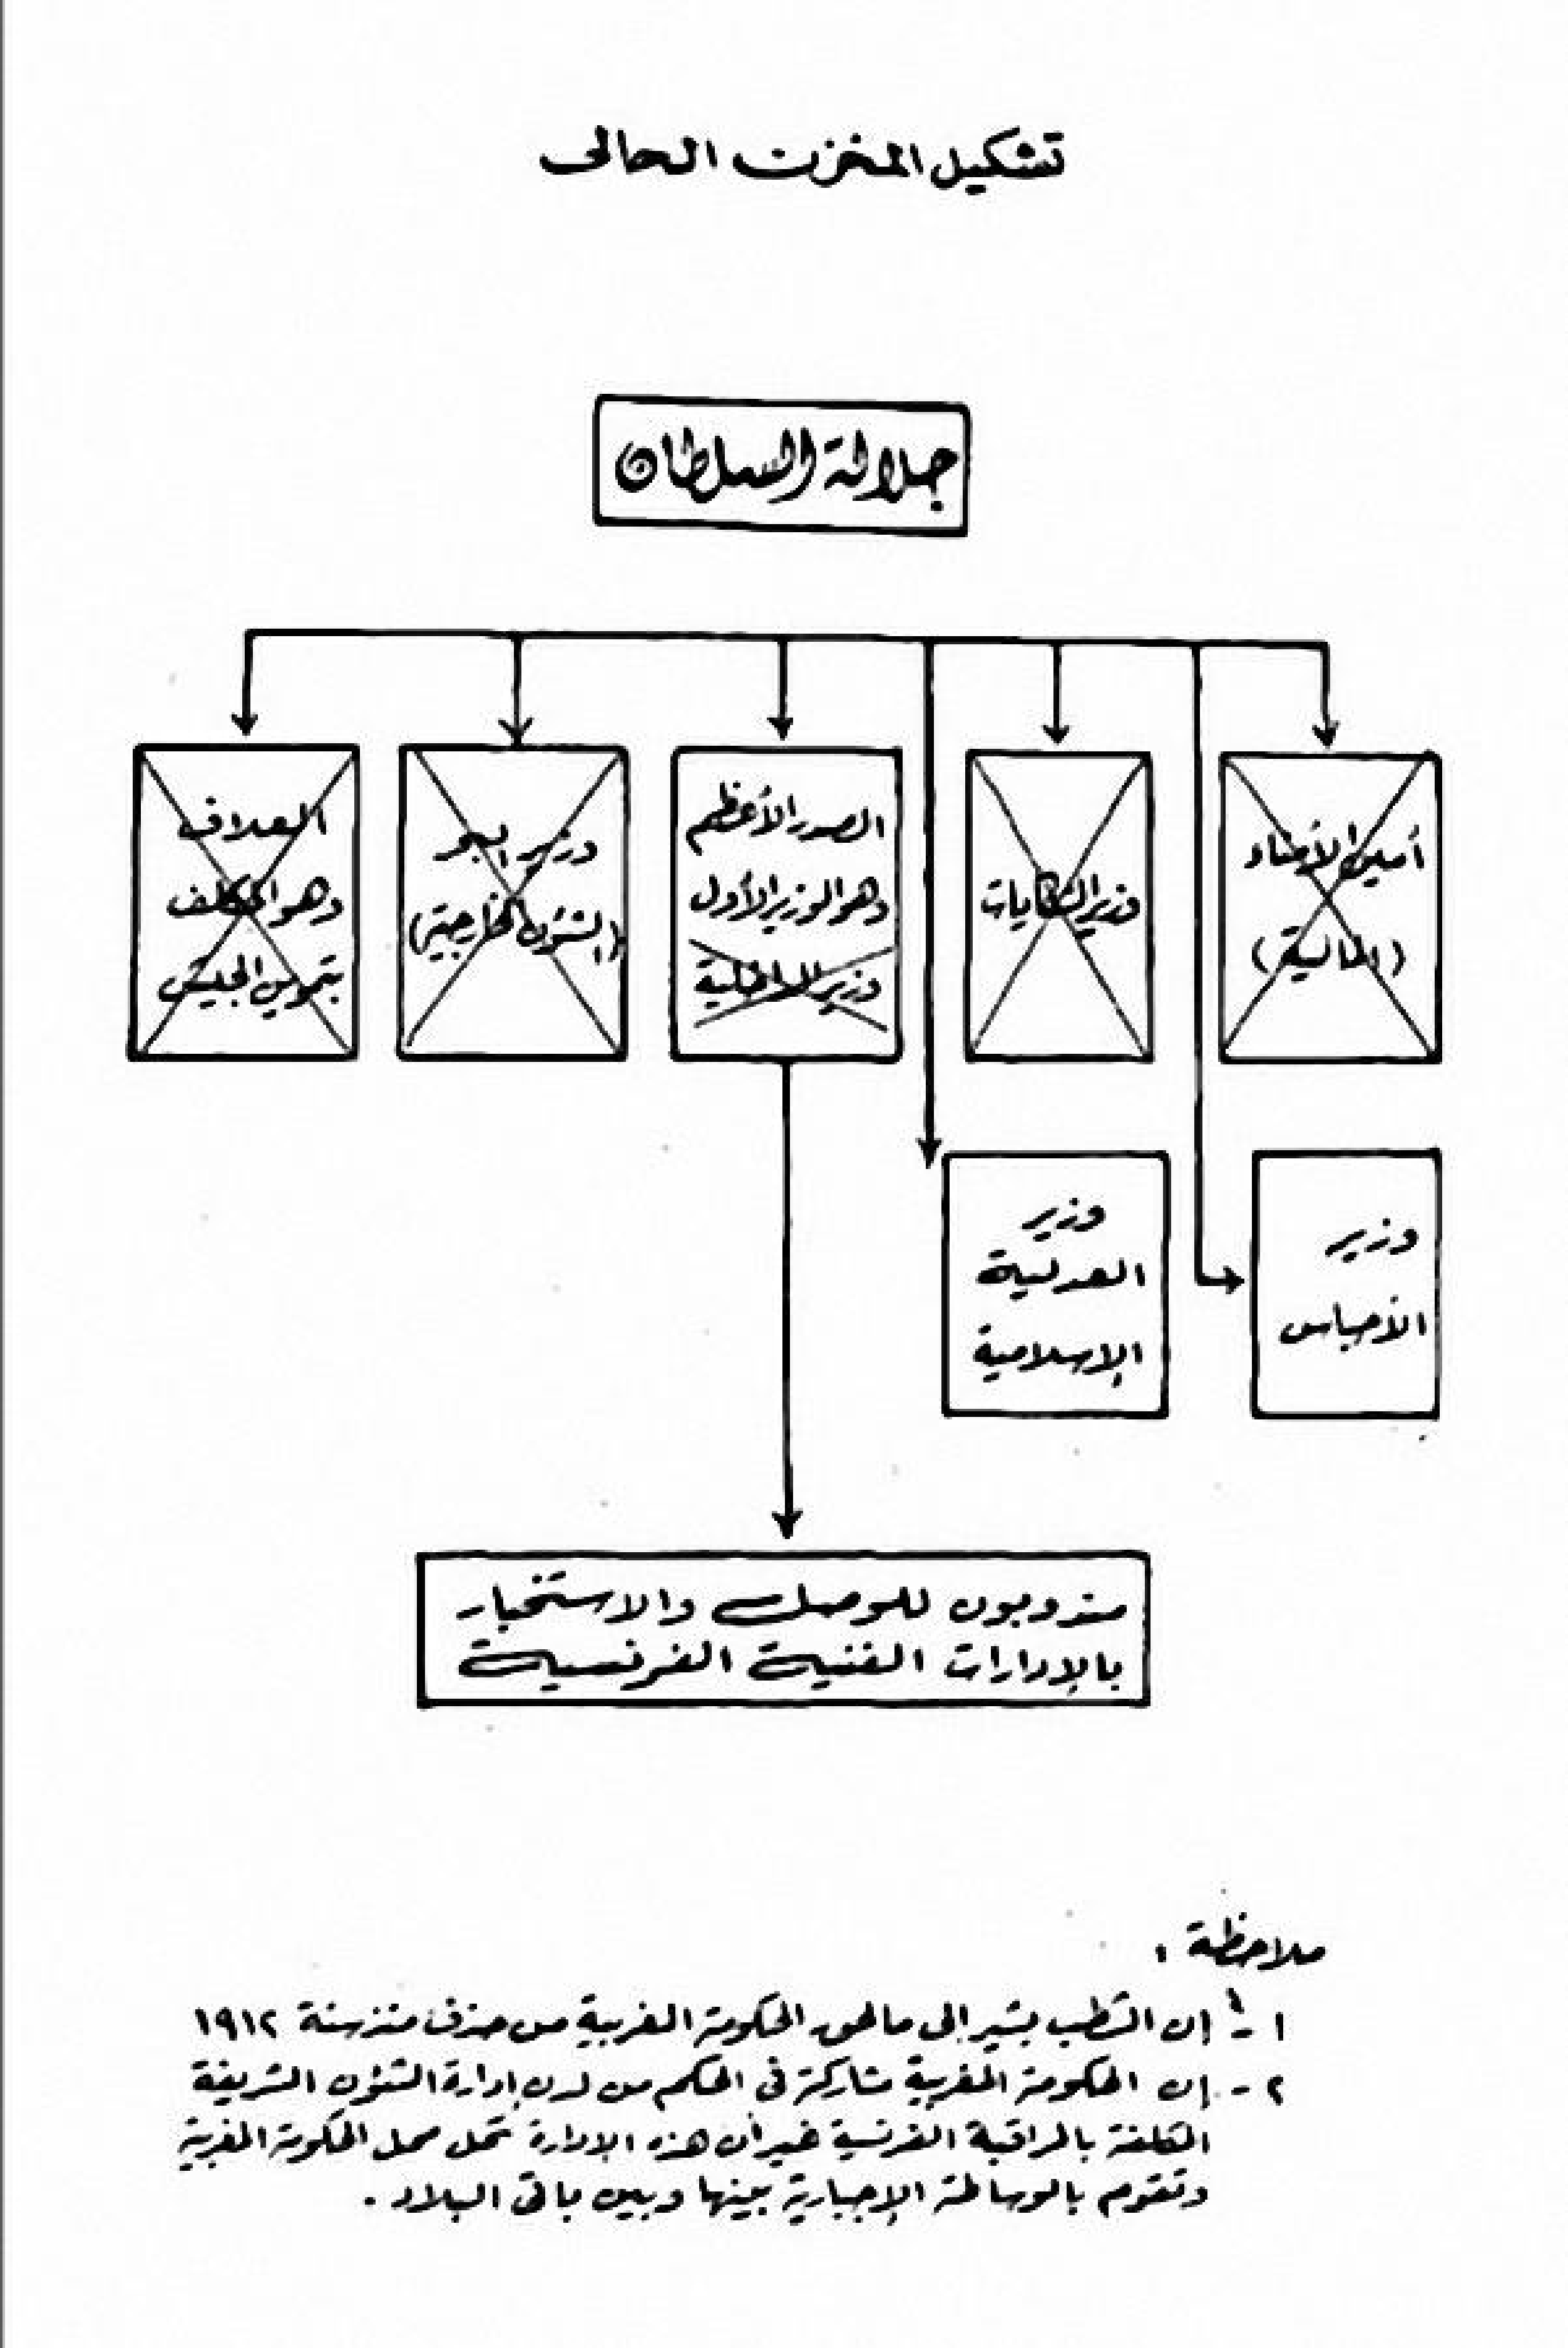 تشكيل المخزن الحالى
جلالة السلطان
أمين الأمناء
(المالية)
وزير الشكايات
الصدر الأعظم
وهو الوزير الأول
وزير الداخلية
وزير البحر
(الشئون الخارجية)
العلاف
وهو المكلف
بتموين الجيش
وزير
الأحباس
وزير
العدلية
الإسلامية
مندوبون للوصل والاستخبار
بالإدارات الفنية الفرنسية
ملاحظة :
١ - إن الشطب يشير إلى ما لحق الحكومة المغربية من حذف منذ سنة ١٩١٢
٢ - إن الحكومة المغربية مشاركة فى الحكم من لدن إدارة الشئون الشريفة
المكلفة بالمراقبة الفرنسية غير أن هذه الإدارة تحل محل الحكومة المغربية
وتقوم بالوساطة الإجبارية بينها وبين باقى البلاد .